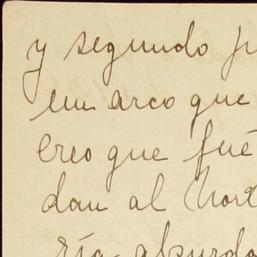 y segundo
un arco que
creo que fué
dan al Nort
ría absurdo